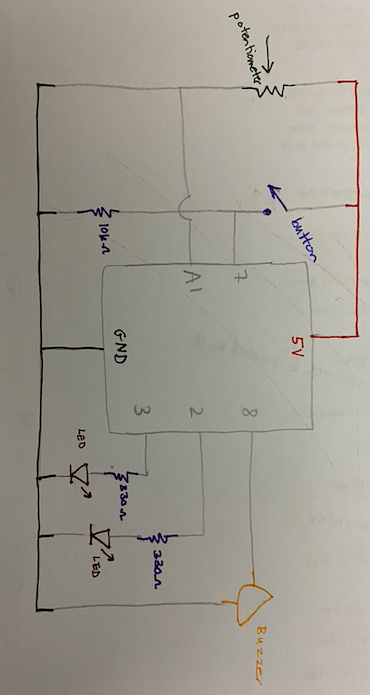 potentiometer
button
10kΩ
A1
7
5V
GND
3
2
8
LED
330Ω
LED
330Ω
Buzzer